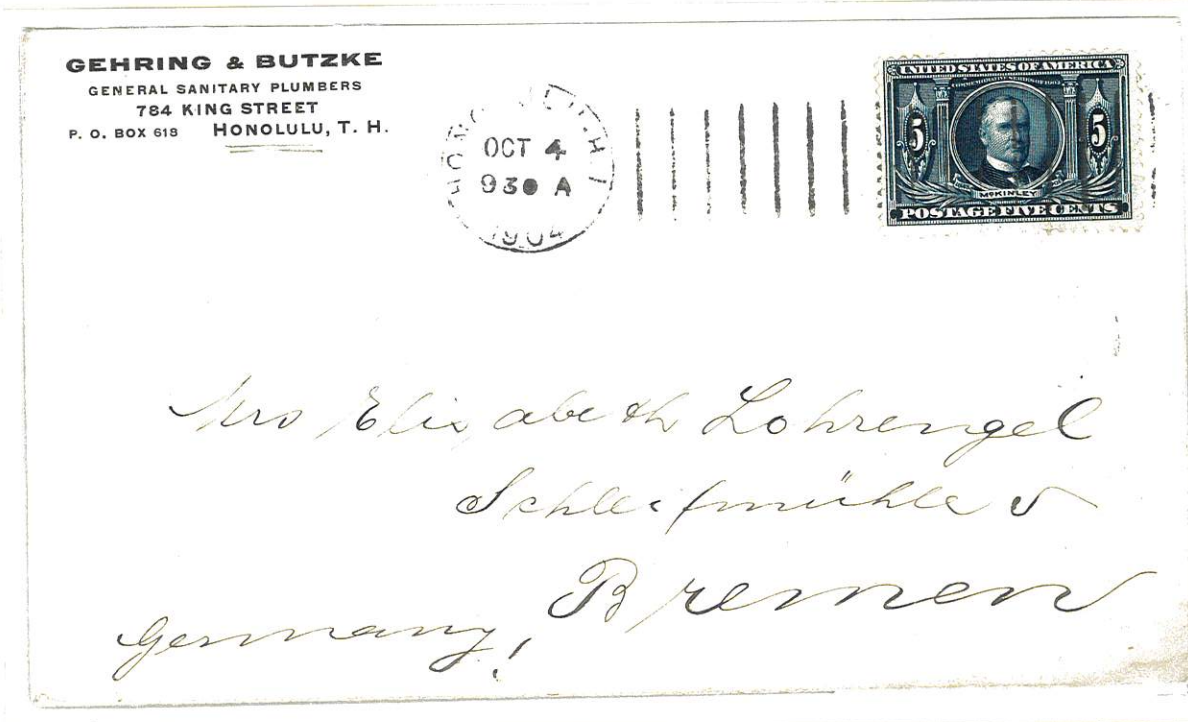 GEHRING & BUTZKE
GENERAL SANITARY PLUMBERS
784 KING STREET
P. O. BOX 618 HONOLULU, T. H.
HONOLULU, H I
OCT 4
930 A
1904
UNITED STATES OF AMERICA
5 5
McKINLEY
POSTAGE FIVE CENTS
Mrs Elisabeth Lohrengel
Schleifmühle 5
Bremen
Germany!